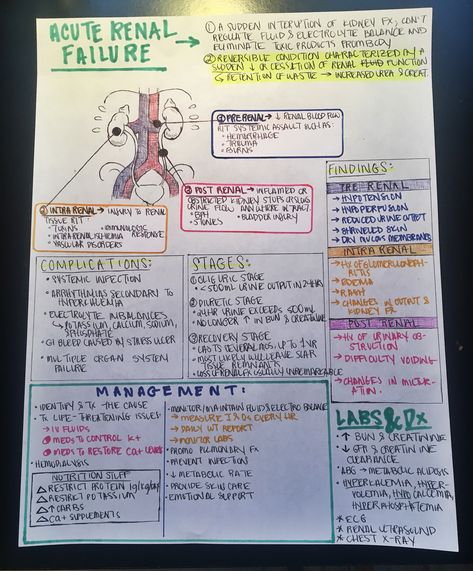 ACUTE RENAL
FAILURE →
① A SUDDEN INTERUPTION OF KIDNEY FX; CON'T
REGULATE FLUID & ELECTROLYTE BALANCE AND
ELIMINATE TOXIC PRODUCTS FROM BODY
② REVERSIBLE CONDITION CHARACTERIZED BY A
SUDDEN ↓ OR CESSATION OF RENAL FLUID FUNCTION
↳ RETENTION OF WASTE → INCREASED UREA & CREAT.
① PRERENAL → ↓ RENAL BLOOD FLOW
R/T SYSTEMIC ASSAULT SUCH AS:
• HEMORRHAGE
• TRAUMA
• BURNS
② POST RENAL → INFLAMED OR
OBSTRUCTED KIDNEY STOPS
URINE FLOW ANYWHERE IN TRACT.
• BPH
• STONES
• BLADDER INJURY
③ INTRA RENAL → INJURY TO RENAL
TISSUE R/T:
• TOXINS
• IMMUNOLOGIC RESPONSE
• INTRARENAL ISCHEMIA
• VASCULAR DISORDERS
FINDINGS:
PRE RENAL
→ HYPOTENSION
→ HYPOPERFUSION
→ REDUCED URINE OUTPUT
→ SHRIVELED SKIN
→ DRY MUCUS MEMBRANES
INTRA RENAL
→ HX OF GLOMERULONEPH-
RITIS
→ EDEMA
→ RASH
→ CHANGES IN OUTPUT &
KIDNEY FX
POST RENAL
→ HX OF URINARY OB-
STRUCTION
→ DIFFICULTY VOIDING
→ CHANGES IN MICTUR-
ATION.
COMPLICATIONS:
• SYSTEMIC INFECTION
• ARRHYTHMIAS SECONDARY TO
HYPERKALEMIA
• ELECTROLYTE IMBALANCES
↳ POTASSIUM, CALCIUM, SODIUM,
PHOSPHATE
• GI BLEED CAUSED BY STRESS ULCER
• MULTIPLE ORGAN SYSTEM
FAILURE
STAGES:
① OLIGURIC STAGE
< 500ML URINE OUTPUT IN 24HRS
② DIURETIC STAGE
• 24HR URINE EXCEEDS 500ML
• NO LONGER ↑ IN BUN & CREATININE
③ RECOVERY STAGE
• LASTS SEVERAL MOS, UP TO 1 YR
• MOST LIKELY WILL LEAVE SCAR
TISSUE REMNANTS
• LOSS OF RENAL FX USUALLY UNREMARKABLE
MANAGEMENT:
• IDENTIFY & TX THE CAUSE
• TX LIFE-THREATENING ISSUES
→ IV FLUIDS
MEDS TO CONTROL K+
MEDS TO RESTORE CA+ LEVELS
• HEMODIALYSIS
NUTRITION STUFF
△ RESTRICT PROTEIN 1g/kg/day
△ RESTRICT POTASSIUM
△ ↑ CARBS
△ CA+ SUPPLEMENTS
• MONITOR/MAINTAIN FLUID & ELECTRO BALANCE
→ MEASURE I & Os EVERY HR
→ DAILY WT REPORT
→ MONITOR LABS
• PROMO PULMONARY FX
• PREVENT INFECTION
• ↓ METABOLIC RATE
• PROVIDE SKIN CARE
• EMOTIONAL SUPPORT
LABS & Dx
• ↑ BUN & CREATININE
• ↓ GFR & CREATININE
CLEARANCE
• ABG → METABOLIC ACIDOSIS
• HYPERKALEMIA, HYPER-
VOLEMIA, HYPOCALCEMIA,
HYPERPHOSPHATEMIA
* ECG
* RENAL ULTRASOUND
* CHEST X-RAY